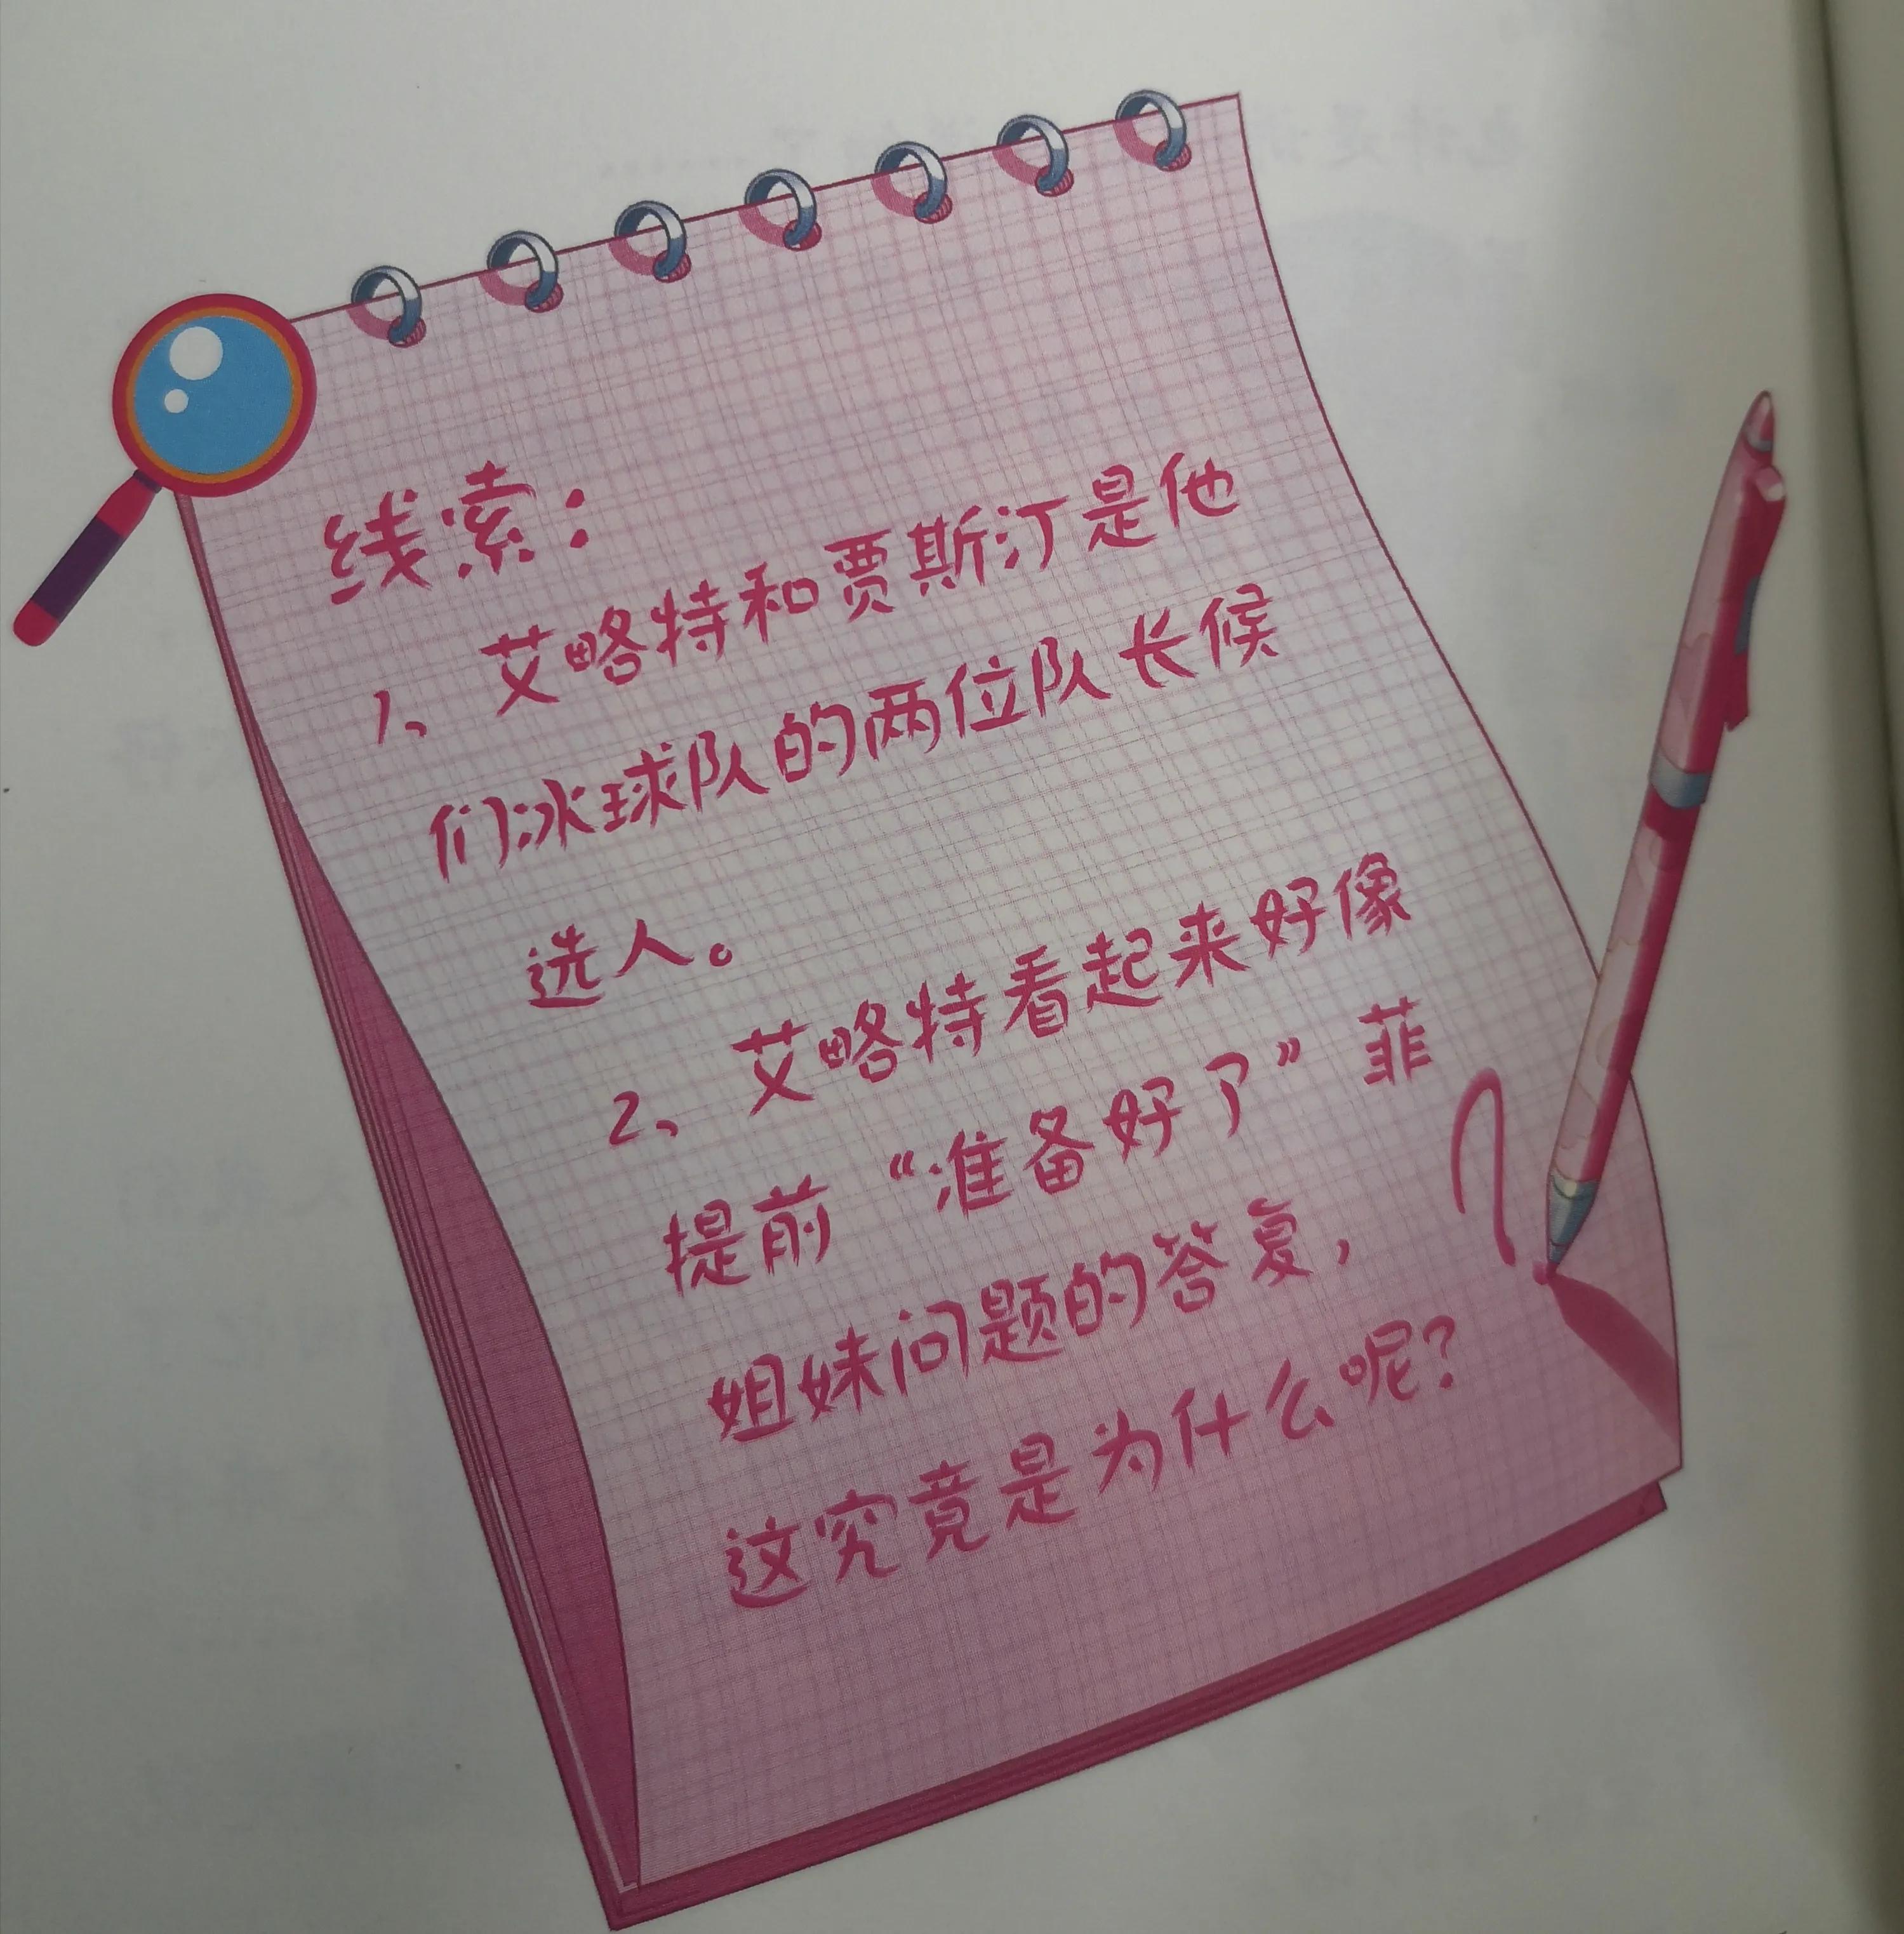 线索：
1、艾略特和贾斯汀是他
们冰球队的两位队长候
选人。
2、艾略特看起来好像
提前“准备好了”菲
姐妹问题的答复，
这究竟是为什么呢？